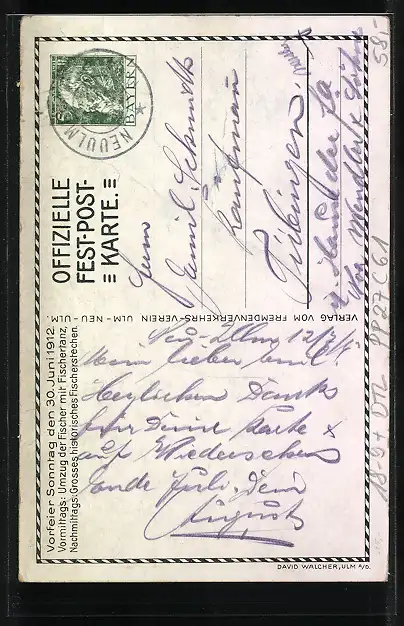 5
BAYERN
NEUULM
OFFIZIELLE
FEST-POST-
KARTE.
Herrn
Emil Schmidt
Kaufman
Tübingen.
Wendler &
58,-
VERLAG VOM FREMDENVERKEHRS-VEREIN ULM - NEU - ULM.
Vorfeier Sonntag den 30. Juni 1912.
Vormittags: Umzug der Fischer mit Fischertanz,
Nachmittags: Grosses historisches Fischerstechen.
Neu-Ulm 12/7
Mein lieber Emil!
Herzlichen Dank
für Deine Karte &
auf Wiedersehen
Ende Juli. Dein
August
18-97 DTL PP27 C61
DAVID WALCHER, ULM A/D.